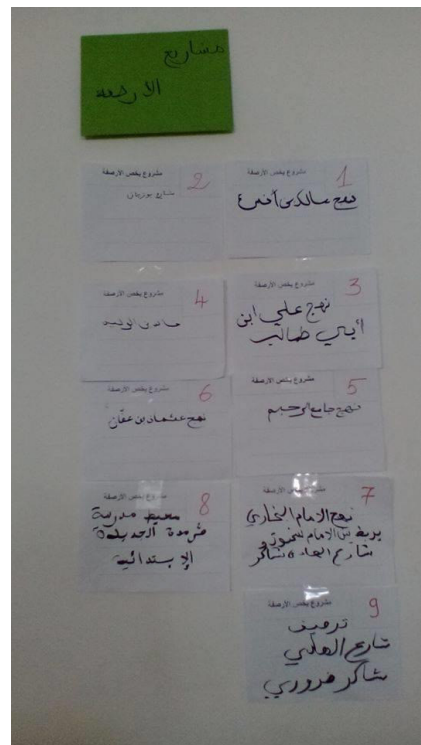 مشاريع
الأرصفة
1
مشروع يخص الأرصفة
نهج مالك بن أنس
2
مشروع يخص الأرصفة
شارع بورسان
3
مشروع يخص الأرصفة
نهج علي ابن
أبي طالب
4
مشروع يخص الأرصفة
5
مشروع يخص الأرصفة
نهج جامع الرحيم
6
مشروع يخص الأرصفة
نهج عثمان بن عفان
7
مشروع يخص الأرصفة
نهج الامام البخاري
الامام سحنون و
شارع شاكر
8
مشروع يخص الأرصفة
محيط مدرسة
الجديدة
الإبتدائية
9
مشروع يخص الأرصفة
ترصيف
شارع الهادي
شاكر ضروري